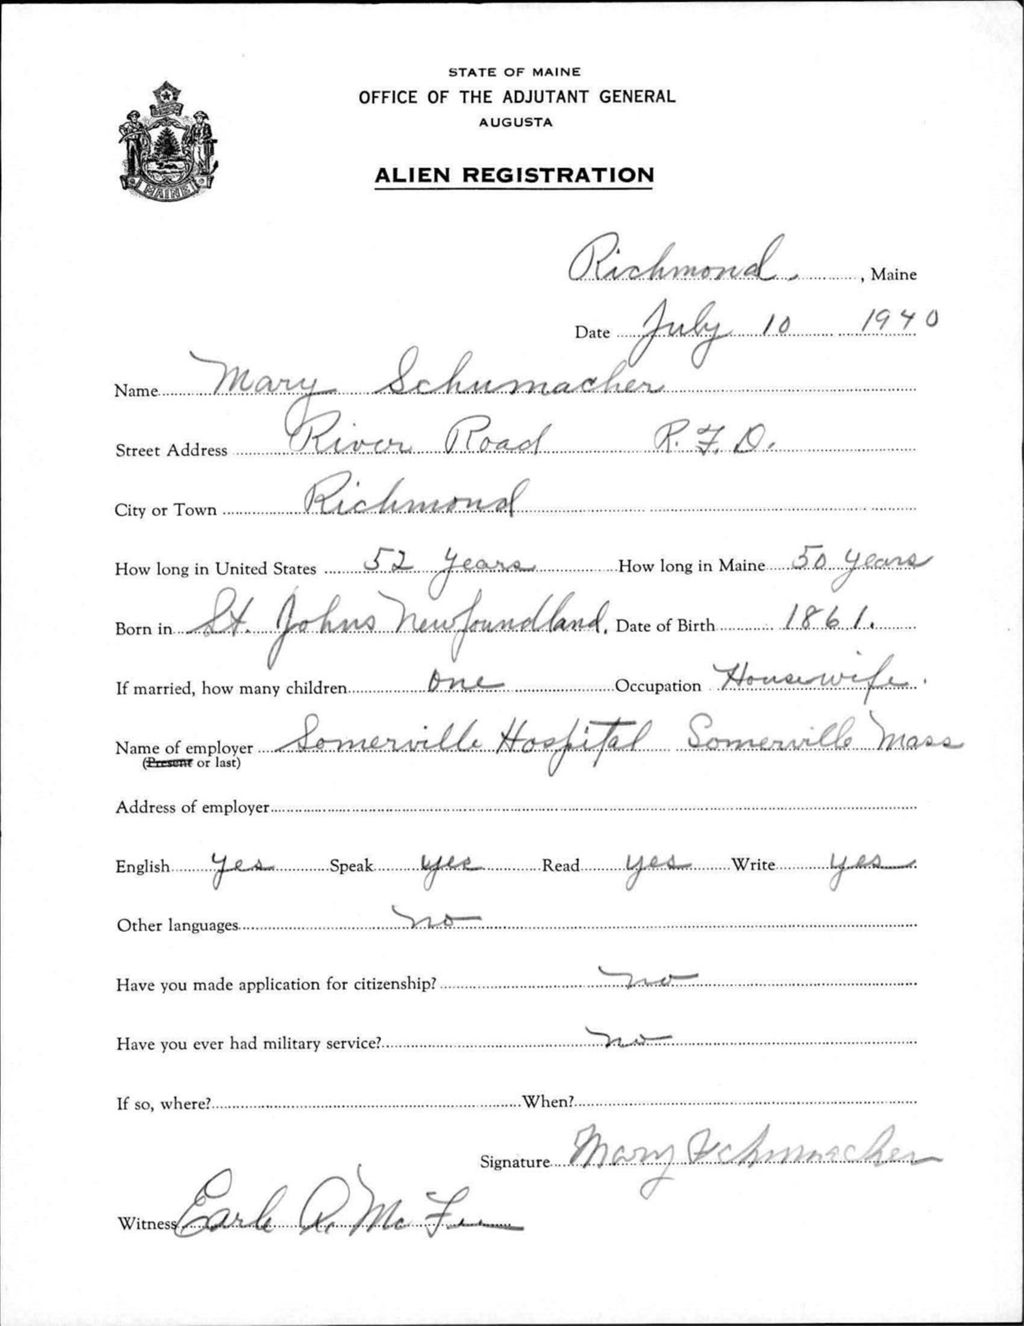 STATE OF MAINE
OFFICE OF THE ADJUTANT GENERAL
AUGUSTA
ALIEN REGISTRATION
MAINE
Richmond, Maine
Date July 10 1940
Name Mary Schumacher
Street Address River Road R.F.D.
City or Town Richmond
How long in United States 52 years How long in Maine 50 years
Born in St. Johns Newfoundland. Date of Birth 1861.
If married, how many children One Occupation Housewife.
Name of employer Somerville Hospital Somerville Mass
(Present or last)
Address of employer
English Yes Speak yes Read yes Write yes
Other languages no
Have you made application for citizenship? no
Have you ever had military service? no
If so, where? When?
Signature Mary Schumacher
Witness Earle R. Mc